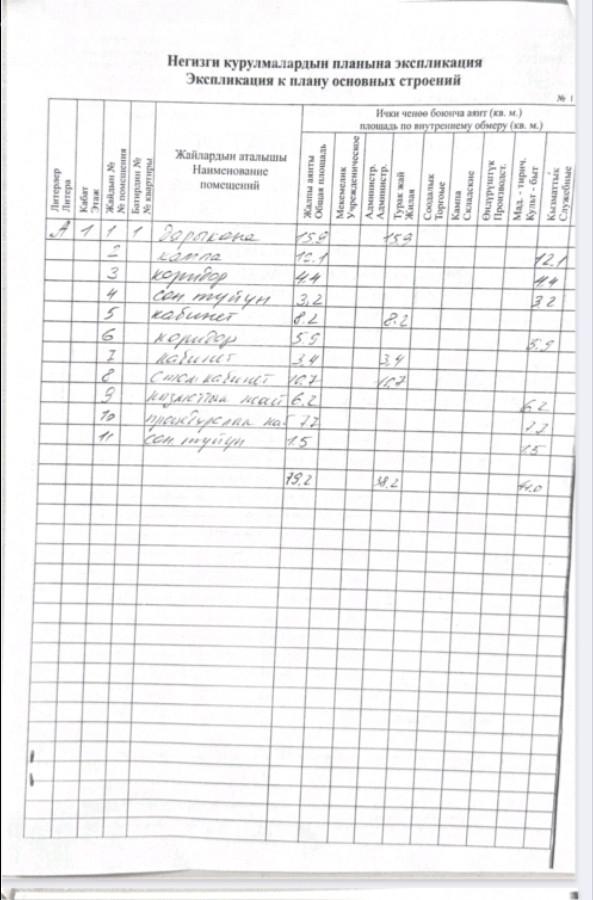 Негизги курулмалардын планына экспликация
Экспликация к плану основных строений
№ 1
Литерлер Литера
Кабат Этаж
Жайдын № № помещения
Батирдин № № квартиры
Жайлардын аталышы
Наименование
помещений
Ички ченөө боюнча аянт (кв. м.)
площадь по внутреннему обмеру (кв. м.)
Жалпы аянты Общая площадь
Мекемелик Учрежденическое
Администр. Администр.
Турак жай Жилая
Соодалык Торговые
Кампа Складские
Өндүрүштүк Производст.
Мад. - тирич. Культ - быт
Кызматтык Служебные
А 1 1 1 Дарыкана 15.9 15.9
2 кампа 12.1 12.1
3 коридор 4.4 4.4
4 сан түйүн 3.2 3.2
5 кабинет 8.2 8.2
6 коридор 5.9 5.9
7 кабинет 3.4 3.4
8 стом кабинет 10.7 10.7
9 6.2 6.2
10 7.7 7.7
11 сан түйүн 1.5 1.5
79.2 38.2 41.0